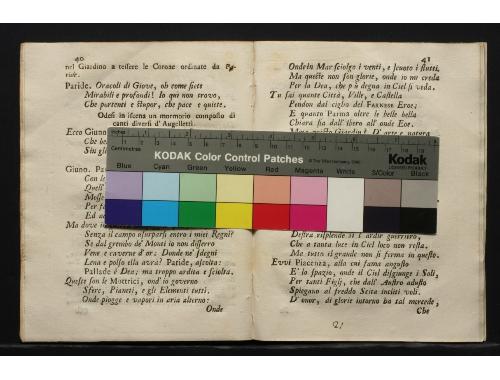 40
nel Giardino a tessere le Corone ordinate da
ride.
Paride. Oracoli di Giove, oh come siete
Mirabili e profondi! Io qui non trovo,
Che portenti e stupor, che pace e quiete.
Odesi in iscena un mormorio composto di
canti diversi d'Augelletti.
Ecco Giuno
Che be
Sin gl
Giuno. Pa
Con le
Quest'
Mosse
Per fa
Ed ac
Ma dove
Senza il campo usurparsi entro i miei Regni?
Se dal grembo de' Monti io non disserro
Vene e caverne d'or: Donde ne' sdegni
Lena e possa ella avrà? Paride, ascolta:
Pallade è Dea; ma troppo ardita e sciolta.
Queste son le Mottrici, ond'io governo
Sfere, Pianeti, e gli Elementi tutti.
Onde piogge e vapori in aria alterno:
Onde
41
Onde in Mar sciolgo i venti, e scuoto i flutti.
Ma queste non son glorie, onde io mi creda
Per la Dea, che più degna in Ciel si veda.
Tu sai quante Città, Ville, e Castella
Pendon dal ciglio del FARNESE Eroe;
E quanto Parma oltre le belle bella
Chiara sia dall'Ibero all'onde Eoe.
Destra risplende il ardir guerriero,
Che a tanta luce in Ciel loco non resta.
Ma tutto il grande non si ferma in questo.
Evvi Piacenza, alla cui fama angusto
E' lo spazio, onde il Ciel disgiunge i Soli,
Per tanti Figlj, che dall'Austro adusto
Spiegano al freddo Scita incliti voli.
D'onor, di glorie intorno ha tal mercede,
Che
21
inches
Centimetres
KODAK Color Control Patches
Kodak
LICENSED PRODUCT
Blue Cyan Green Yellow Red Magenta White 3/Color Black